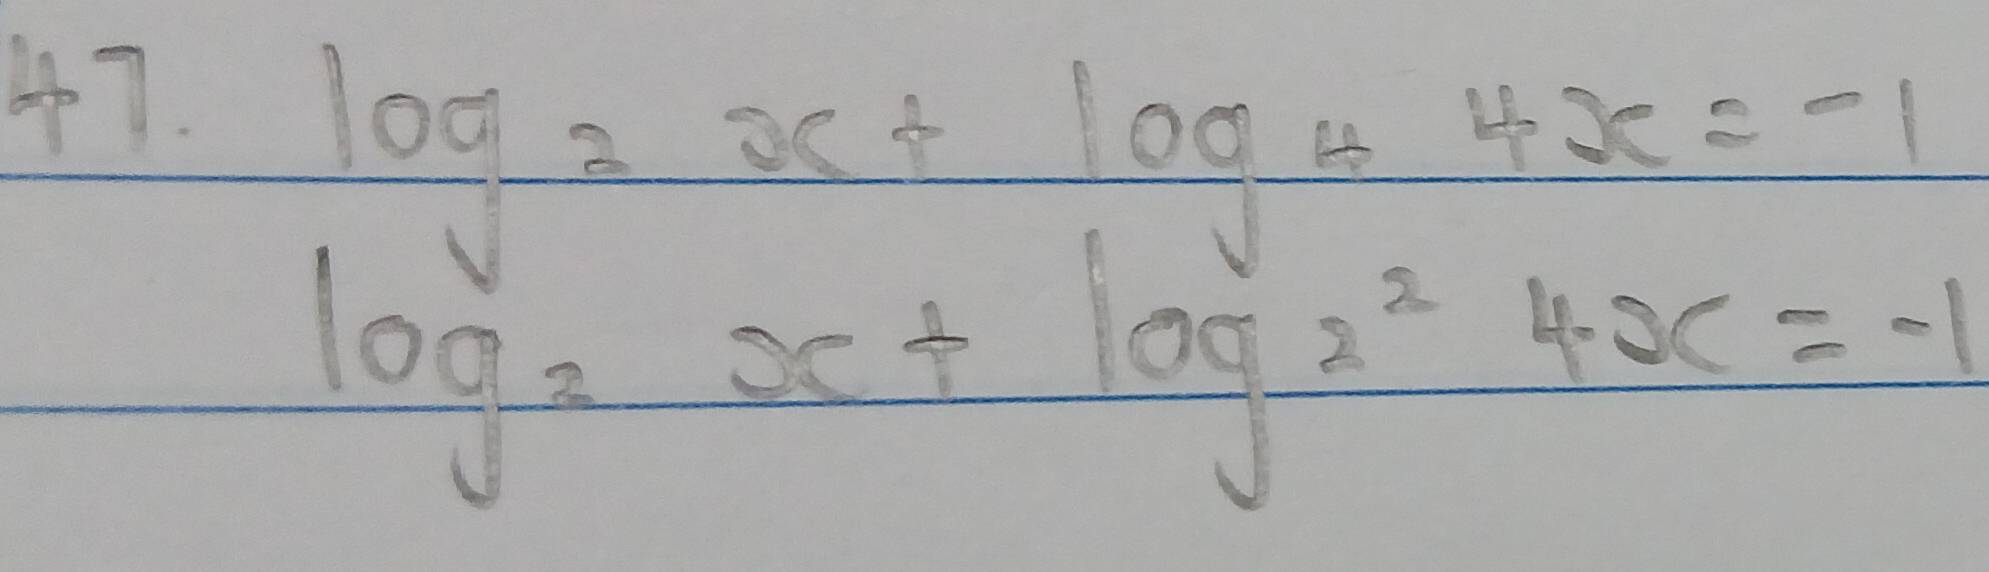 47. log₂ x + log₄ 4x = -1
log₂ x + log₂² 4x = -1